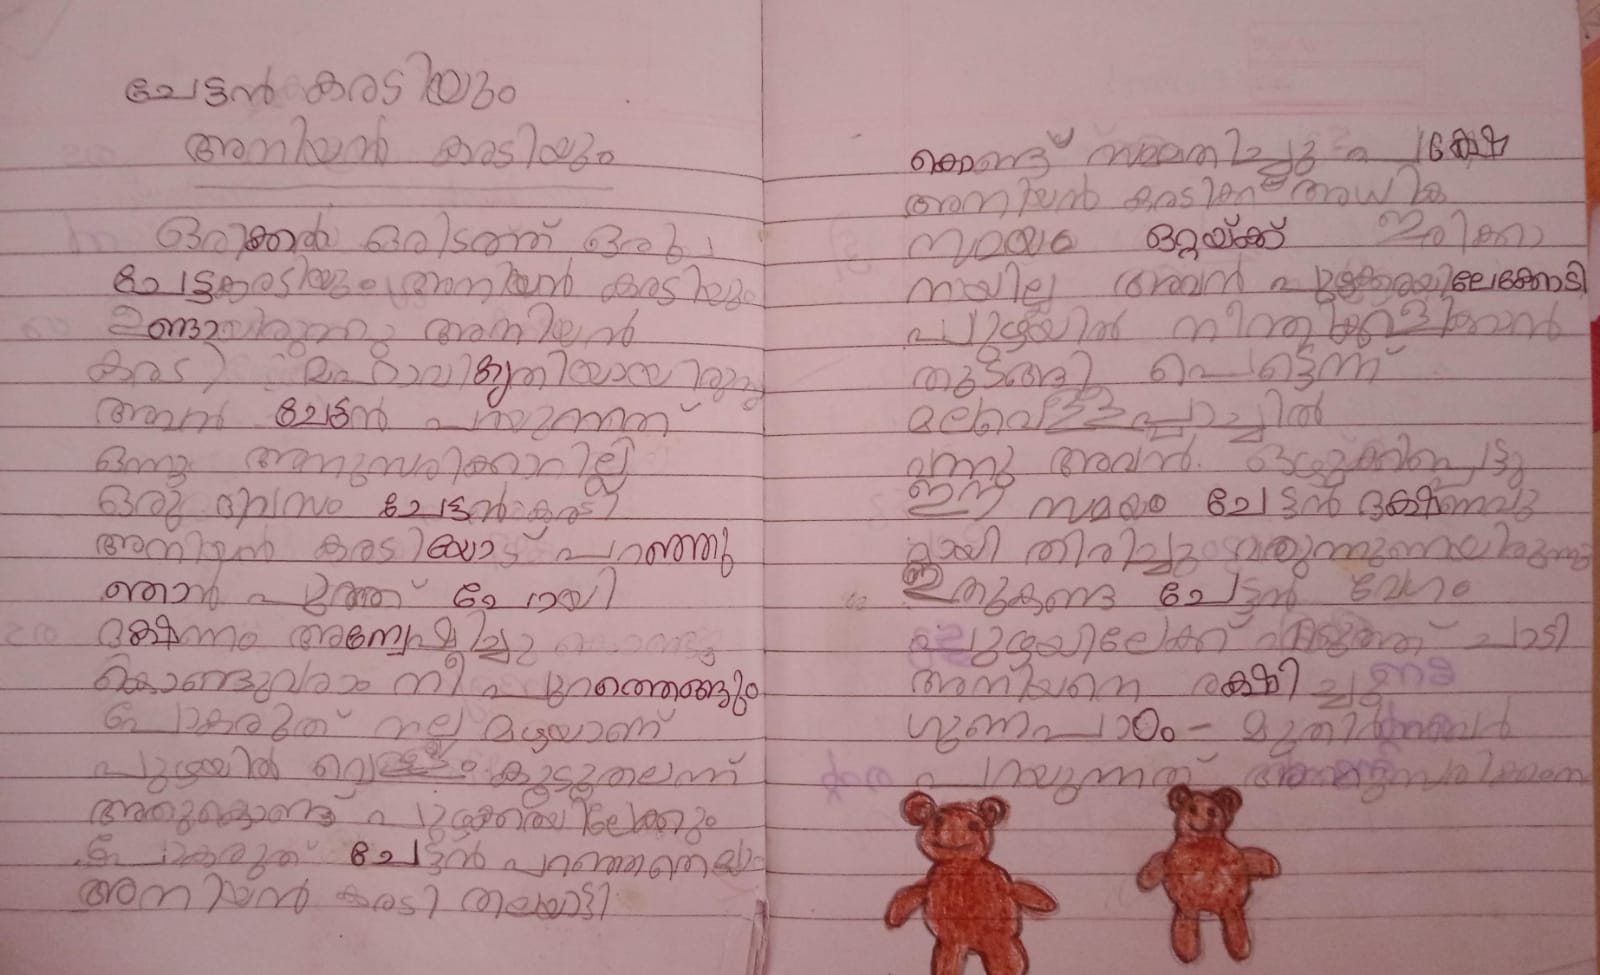 ചേട്ടൻ കരടിയും
അനിയൻ കരടിയും
ഒരിക്കൽ ഒരിടത്ത് ഒരു
ചേട്ടകരടിയും അനിയൻ കരടിയും
ഉണ്ടായിരുന്നു അനിയൻ
കരടി മഹാവികൃതിയായിരുന്നു
അവൻ ചേട്ടൻ പറയുന്നത്
ഒന്നും അനുസരിക്കാറില്ല
ഒരു ദിവസം ചേട്ടൻ കരടി
അനിയൻ കരടിയോട് പറഞ്ഞു
ഞാൻ പുറത്ത് പോയി
ഭക്ഷണം അന്വേഷിച്ചു
കൊണ്ടുവരാം നീ പുറത്തെങ്ങും
പോകരുത് നല്ല മഴയാണ്
പുഴയിൽ വെള്ളം കൂടുതലാണ്
അതുകൊണ്ട് പുഴക്കരയിലേക്കും
പോകരുത് ചേട്ടൻ പറഞ്ഞതെല്ലാം
അനിയൻ കരടി തലയാട്ടി
കൊണ്ട് സമ്മതിച്ചു പക്ഷേ
അനിയൻ കരടിക്ക് അധിക
സമയം ഒറ്റയ്ക്ക് ഇരിക്കാ
നായില്ല അവൻ പുഴക്കരയിലേക്കോടി
പുഴയിൽ നീന്തികുളിക്കാൻ
തുടങ്ങി പെട്ടെന്ന്
മലവെള്ളപ്പാച്ചിൽ
വന്നു അവൻ ഒഴുക്കിൽപ്പെട്ടു
ഈ സമയം ചേട്ടൻ ഭക്ഷണവു
മായി തിരിച്ചു വരുന്നുണ്ടായിരുന്നു
ഇതുകണ്ട ചേട്ടൻ വേഗം
പുഴയിലേക്ക് എടുത്ത് ചാടി
അനിയനെ രക്ഷിച്ചു
ഗുണപാഠം - മുതിർന്നവർ
പറയുന്നത്